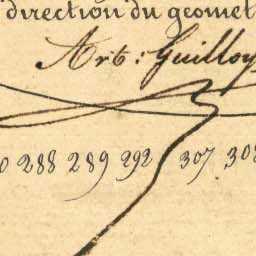 direction du géomet
Art: Guilloy
0 288 289 292 307 308